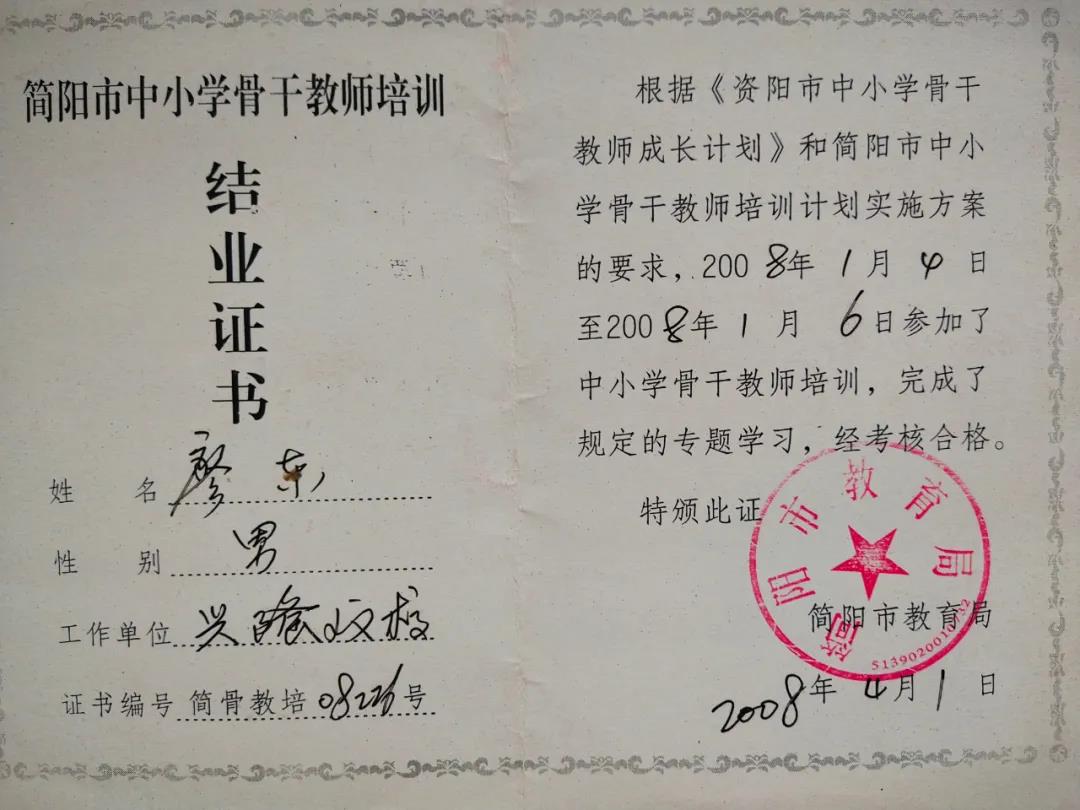 简阳市中小学骨干教师培训
结业证书
姓 名 廖东
性 别 男
工作单位 兴隆
证书编号 简骨教培 号
根据《资阳市中小学骨干
教师成长计划》和简阳市中小
学骨干教师培训计划实施方案
的要求，2008年 1月 4日
至2008年 1月 6日参加了
中小学骨干教师培训，完成了
规定的专题学习，经考核合格。
特颁此证
简阳市教育局
简阳市教育局
5139020010732
2008年 4月 1日